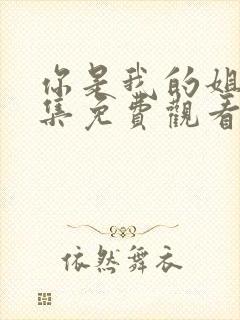 你是我的姐
集免費觀看
依然舞衣